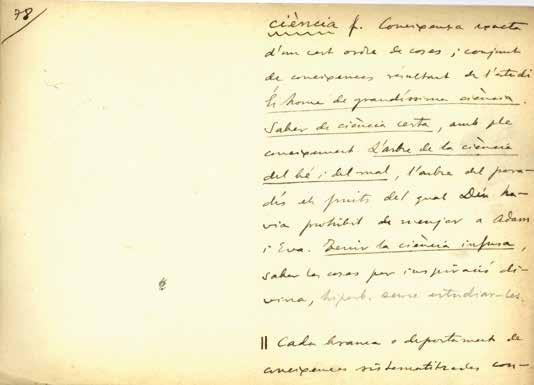 78
ciència f. Coneixensa exacta
d'un cert ordre de coses; conjunt
de coneixences resultant de l'estudi
És home de grandíssima ciència.
Saber de ciència certa, amb ple
coneixement. L'arbre de la ciència
del bé i del mal, l'arbre del para-
dís els fruits del qual Déu ha-
via prohibit de menjar a Adam
i Eva. Tenir la ciència infusa,
saber les coses per inspiració di-
vina, hiperb. sense estudiar-les.
|| Cada branca o departament de
coneixences sistematitzades con-